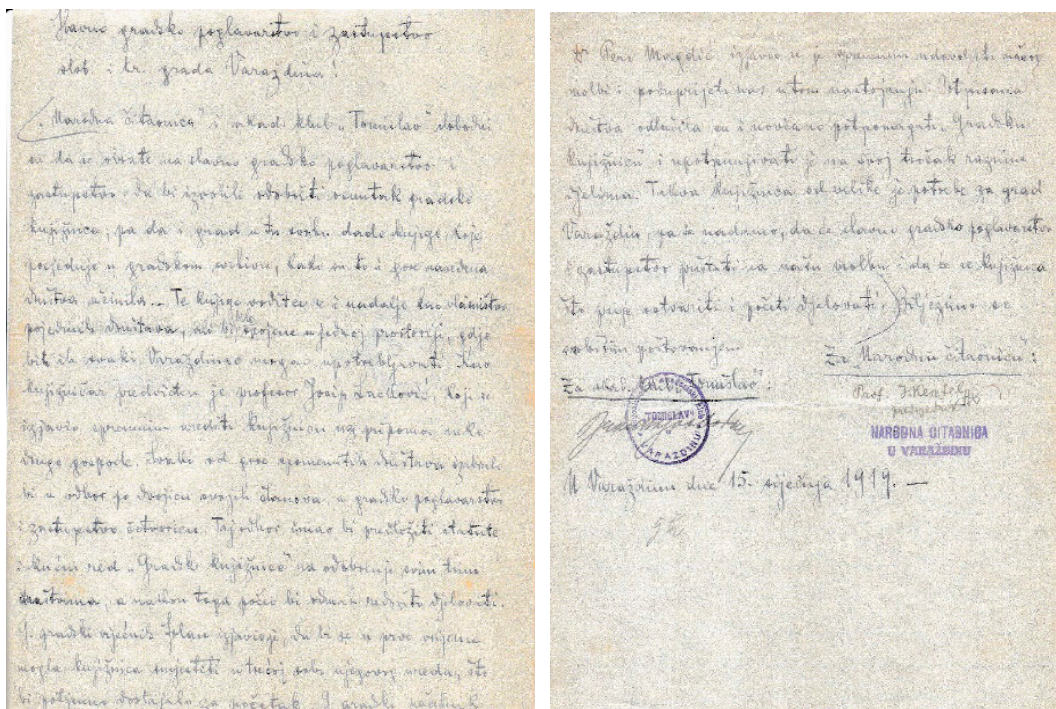 Slavno gradsko poglavarstvo i zastupstvo
slob. i kr. grada Varaždina!
„Narodna čitaonica" i akad. klub „Tomislav" slobodni
su da se obrate na slavno gradsko poglavarstvo i
zastupstvo da bi izvolili odobriti osnutak gradske
knjižnice, pa da i grad u tu svrhu dade knjige, koje
posjeduje u gradskom arhivu, kako su to i gore navedena
društva učinila. — Te knjige vodit će se i nadalje kao vlasništvo
pojedinih društava, ali bi bile spojene u jednoj prostoriji, gdje
bi ih svaki Varaždinac mogao upotrebljavati. Kao
knjižničar predviđen je profesor Josip Lacković, koji se
izjavio spremnim urediti knjižnicu uz pripomoć neke
druge gospode. Svaki od gore spomenutih društava izabrali
bi u odbor po dvojicu svojih članova, a gradsko poglavarstvo
i zastupstvo četvoricu. Taj odbor imao bi predložiti statute
i kućni red „Gradske knjižnice" na odobrenje svim trima
društvima, a nakon toga počeo bi odmah redovito djelovati.
G. gradski vijećnik izjavio je, da bi se u prvo vrijeme
mogla knjižnica smjestiti u trećoj sobi njegovog ureda, što
bi potpuno dostajalo za početak. G. gradski načelnik
dr Pero Magdić izjavio se je spremnim udovoljiti našoj
molbi i poduprijeti nas u tom nastojanju. Potpisana
društva odlučila su i novčano potpomagati „Gradsku
knjižnicu" i upotpunjivati je na svoj trošak raznim
djelima. Takva knjižnica od velike je potrebe za grad
Varaždin, pa se nadamo, da će slavno gradsko poglavarstvo
i zastupstvo pristati na našu molbu i da će se knjižnica
što prije otvoriti i početi djelovati. Bilježimo se
s osobitim poštovanjem
Za „Narodnu čitaonicu":
Za akad. klub „Tomislav":
Prof.
predsjednik
TOMISLAV
U VARAŽDINU
NARODNA ČITAONICA
U VARAŽDINU
U Varaždinu dne 15. siječnja 1919. —